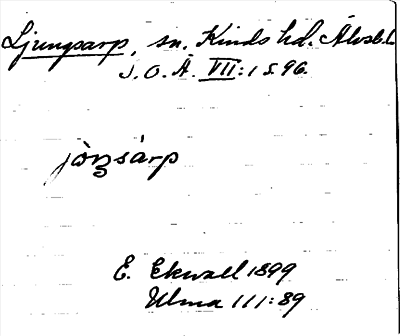 Ljungsarp, sn. Kinds hd. Älvsb.l.
S.O.Ä. VII:1 s. 96.
jòŋsárp
E. Ekwall 1899
Ulma 111:89